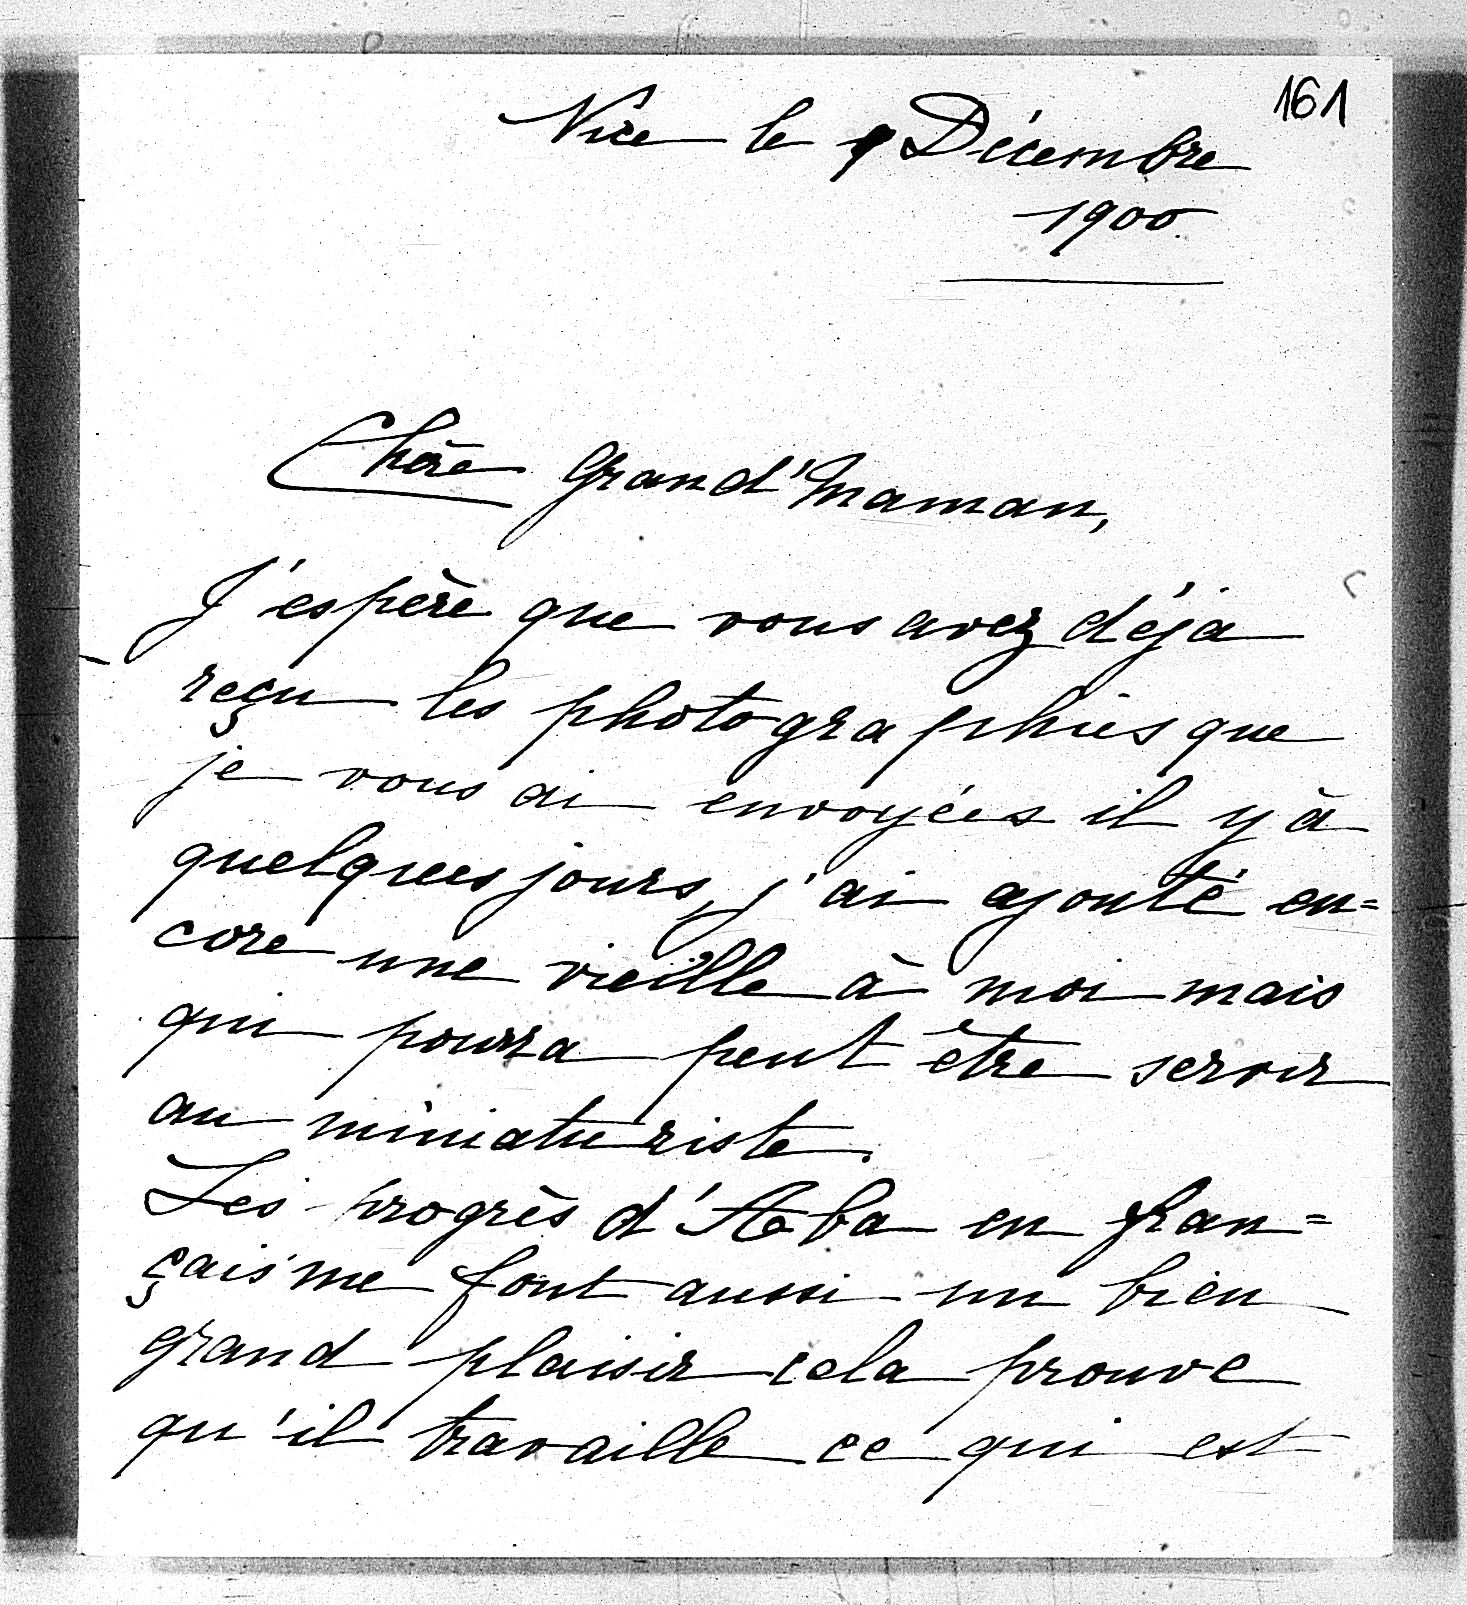 161
Nice le 9 Décembre
1900.
Chère Grand'Maman,
J'espère que vous avez déja
reçu les photographies que
je vous ai envoyées il y à
quelques jours, j'ai ajouté en=
core une vieille à moi mais
qui pourra peut être servir
au miniaturiste.
Les progrès d'Aba en fran=
çais me font aussi un bien
grand plaisir cela prouve
qu'il travaille ce qui est